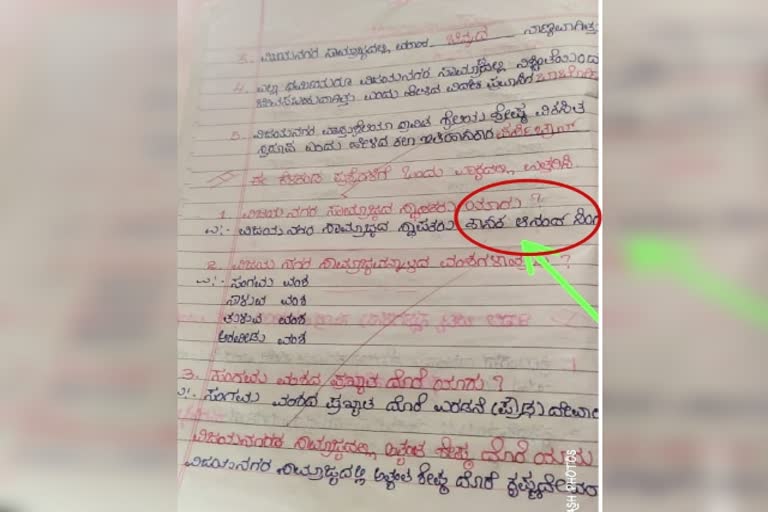 3. ವಿಜಯನಗರ ಸಾಮ್ರಾಜ್ಯದಲ್ಲಿ ವರಾಹ ಚಿನ್ನದ ನಾಣ್ಯವಾಗಿತ್ತು
4. ವಿಜಯನಗರ ಸಾಮ್ರಾಜ್ಯದಲ್ಲಿ
ಎಂದು ಹೇಳಿದ ವಿದೇಶಿ ಪ್ರವಾಸಿಗ
5. ವಿಜಯನಗರ ವಾಸ್ತುಶೈಲಿಯು ದ್ರಾವಿಡ ಶೈಲಿಯ ಶ್ರೇಷ್ಠ ವಿಕಸಿತ
ಸ್ವರೂಪ ಎಂದು ಹೇಳಿದ ಕಲಾ ಇತಿಹಾಸಕಾರ ಪರ್ಸಿಬ್ರೌನ್
ಈ ಕೆಳಕಂಡ ಪ್ರಶ್ನೆಗಳಿಗೆ ಒಂದು ವಾಕ್ಯದಲ್ಲಿ ಉತ್ತರಿಸಿ.
1. ವಿಜಯನಗರ ಸಾಮ್ರಾಜ್ಯದ ಸ್ಥಾಪಕರು ಯಾರು ?
ಉ:- ವಿಜಯನಗರ ಸಾಮ್ರಾಜ್ಯದ ಸ್ಥಾಪಕರು ಶಾಸಕ ಆನಂದ ಸಿಂಗ
2. ವಿಜಯನಗರ ಸಾಮ್ರಾಜ್ಯವನ್ನಾಳಿದ ವಂಶಗಳಾವುವು ?
ಉ:- ಸಂಗಮ ವಂಶ
ಸಾಳುವ ವಂಶ
ತುಳುವ ವಂಶ
ಅರವೀಡು ವಂಶ
3. ಸಂಗಮ ವಂಶದ ಪ್ರಖ್ಯಾತ ದೊರೆ ಯಾರು ?
ಉ:- ಸಂಗಮ ವಂಶದ ಪ್ರಖ್ಯಾತ ದೊರೆ ಎರಡನೆ (ಪ್ರೌಢ) ದೇವರಾ
ವಿಜಯನಗರ ಸಾಮ್ರಾಜ್ಯದಲ್ಲಿ ಅತ್ಯಂತ ಶ್ರೇಷ್ಠ ದೊರೆ ಯಾರು
ವಿಜಯನಗರ ಸಾಮ್ರಾಜ್ಯದಲ್ಲಿ ಅತ್ಯಂತ ಶ್ರೇಷ್ಠ ದೊರೆ ಕೃಷ್ಣದೇವರಾ
ASH PHOTOS